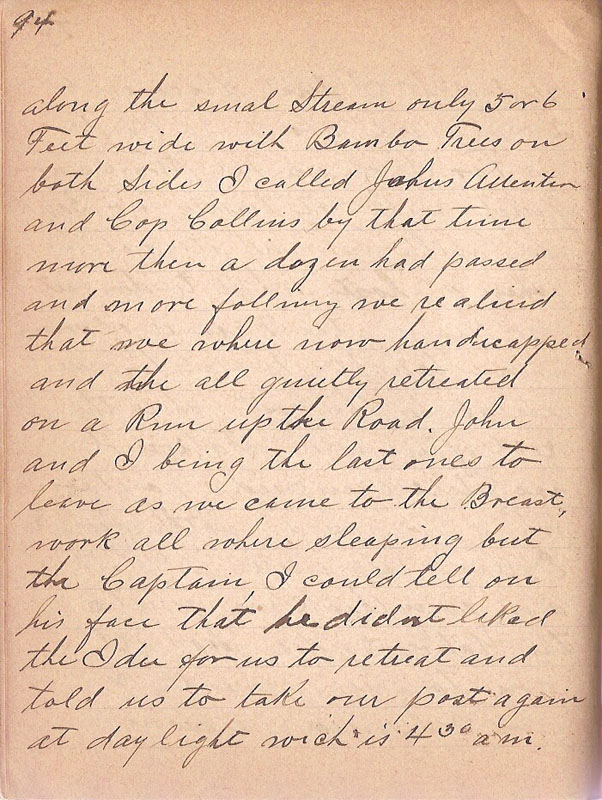 94
along the smal Stream only 5 or 6
Feet wide with Bambo Trees on
both Sides I called Johns Attention
and Cop Collins by that time
more then a dozen had passed
and more follning we realised
that we where now handicapped
and the all quietly retreated
on a Run up the Road. John
and I being the last ones to
leave as we came to the Breast,
work all where sleaping but
the Captain, I could tell on
his face that he didnt liked
the Idee for us to retreat and
told us to take our post again
at day light wich is 4 30 a m.